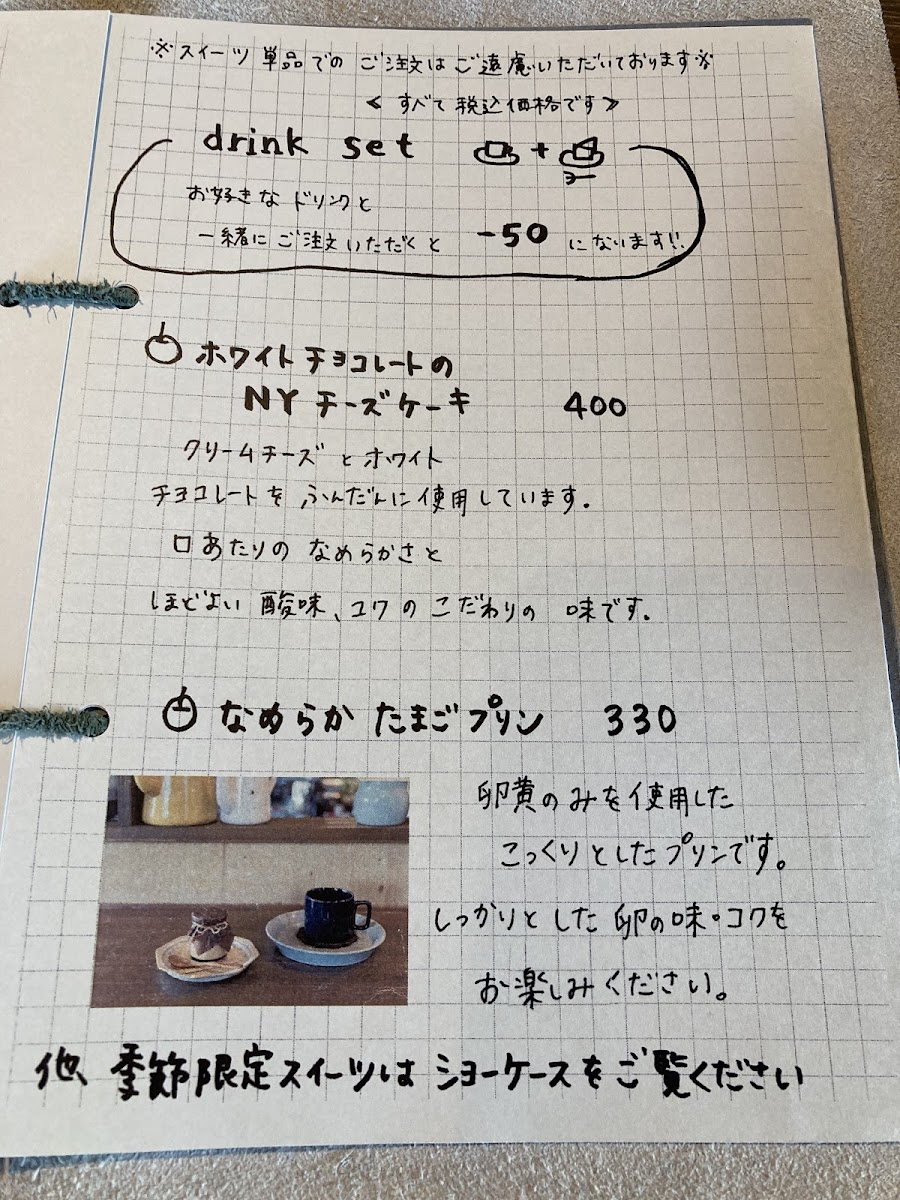 ※スイーツ単品でのご注文はご遠慮いただいております※
≪すべて税込価格です≫
drink set +
お好きなドリンクと
一緒にご注文いただくと -50 になります!!
ホワイトチョコレートの
NYチーズケーキ 400
クリームチーズとホワイト
チョコレートをふんだんに使用しています。
口あたりのなめらかさと
ほどよい酸味、コクのこだわりの味です。
なめらかたまごプリン 330
卵黄のみを使用した
こっくりとしたプリンです。
しっかりとした卵の味・コクを
お楽しみください。
他、季節限定スイーツはショーケースをご覧ください